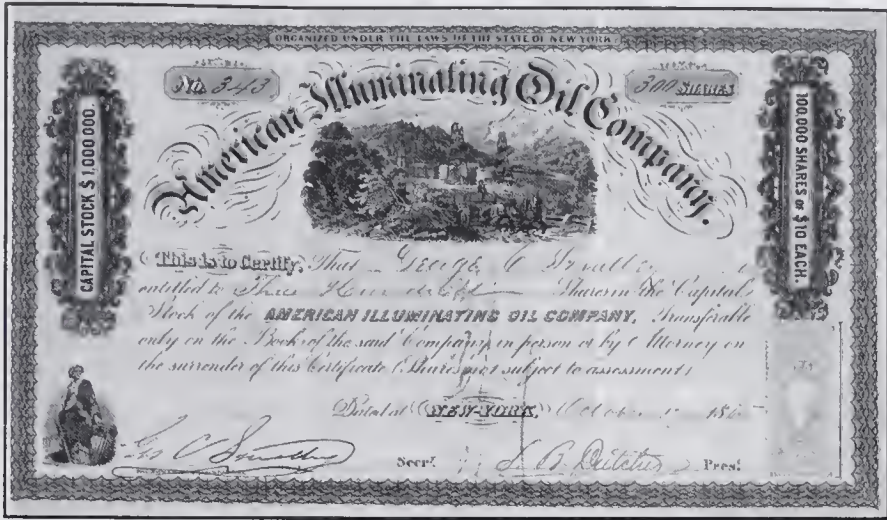 ORGANIZED UNDER THE LAWS OF THE STATE OF NEW YORK.
No. 343
300 SHARES
American Illuminating Oil Company.
CAPITAL STOCK $1,000,000.
100,000 SHARES OF $10 EACH.
This is to Certify, That George C
entitled to Three Hundred Shares in the Capital
Stock of the AMERICAN ILLUMINATING OIL COMPANY, Transferable
only on the Books of the said Company in person or by Attorney on
the surrender of this Certificate Shares not subject to assessment
Dated at NEW-YORK, October 186
Geo C Secy. B Dutcher Pres.